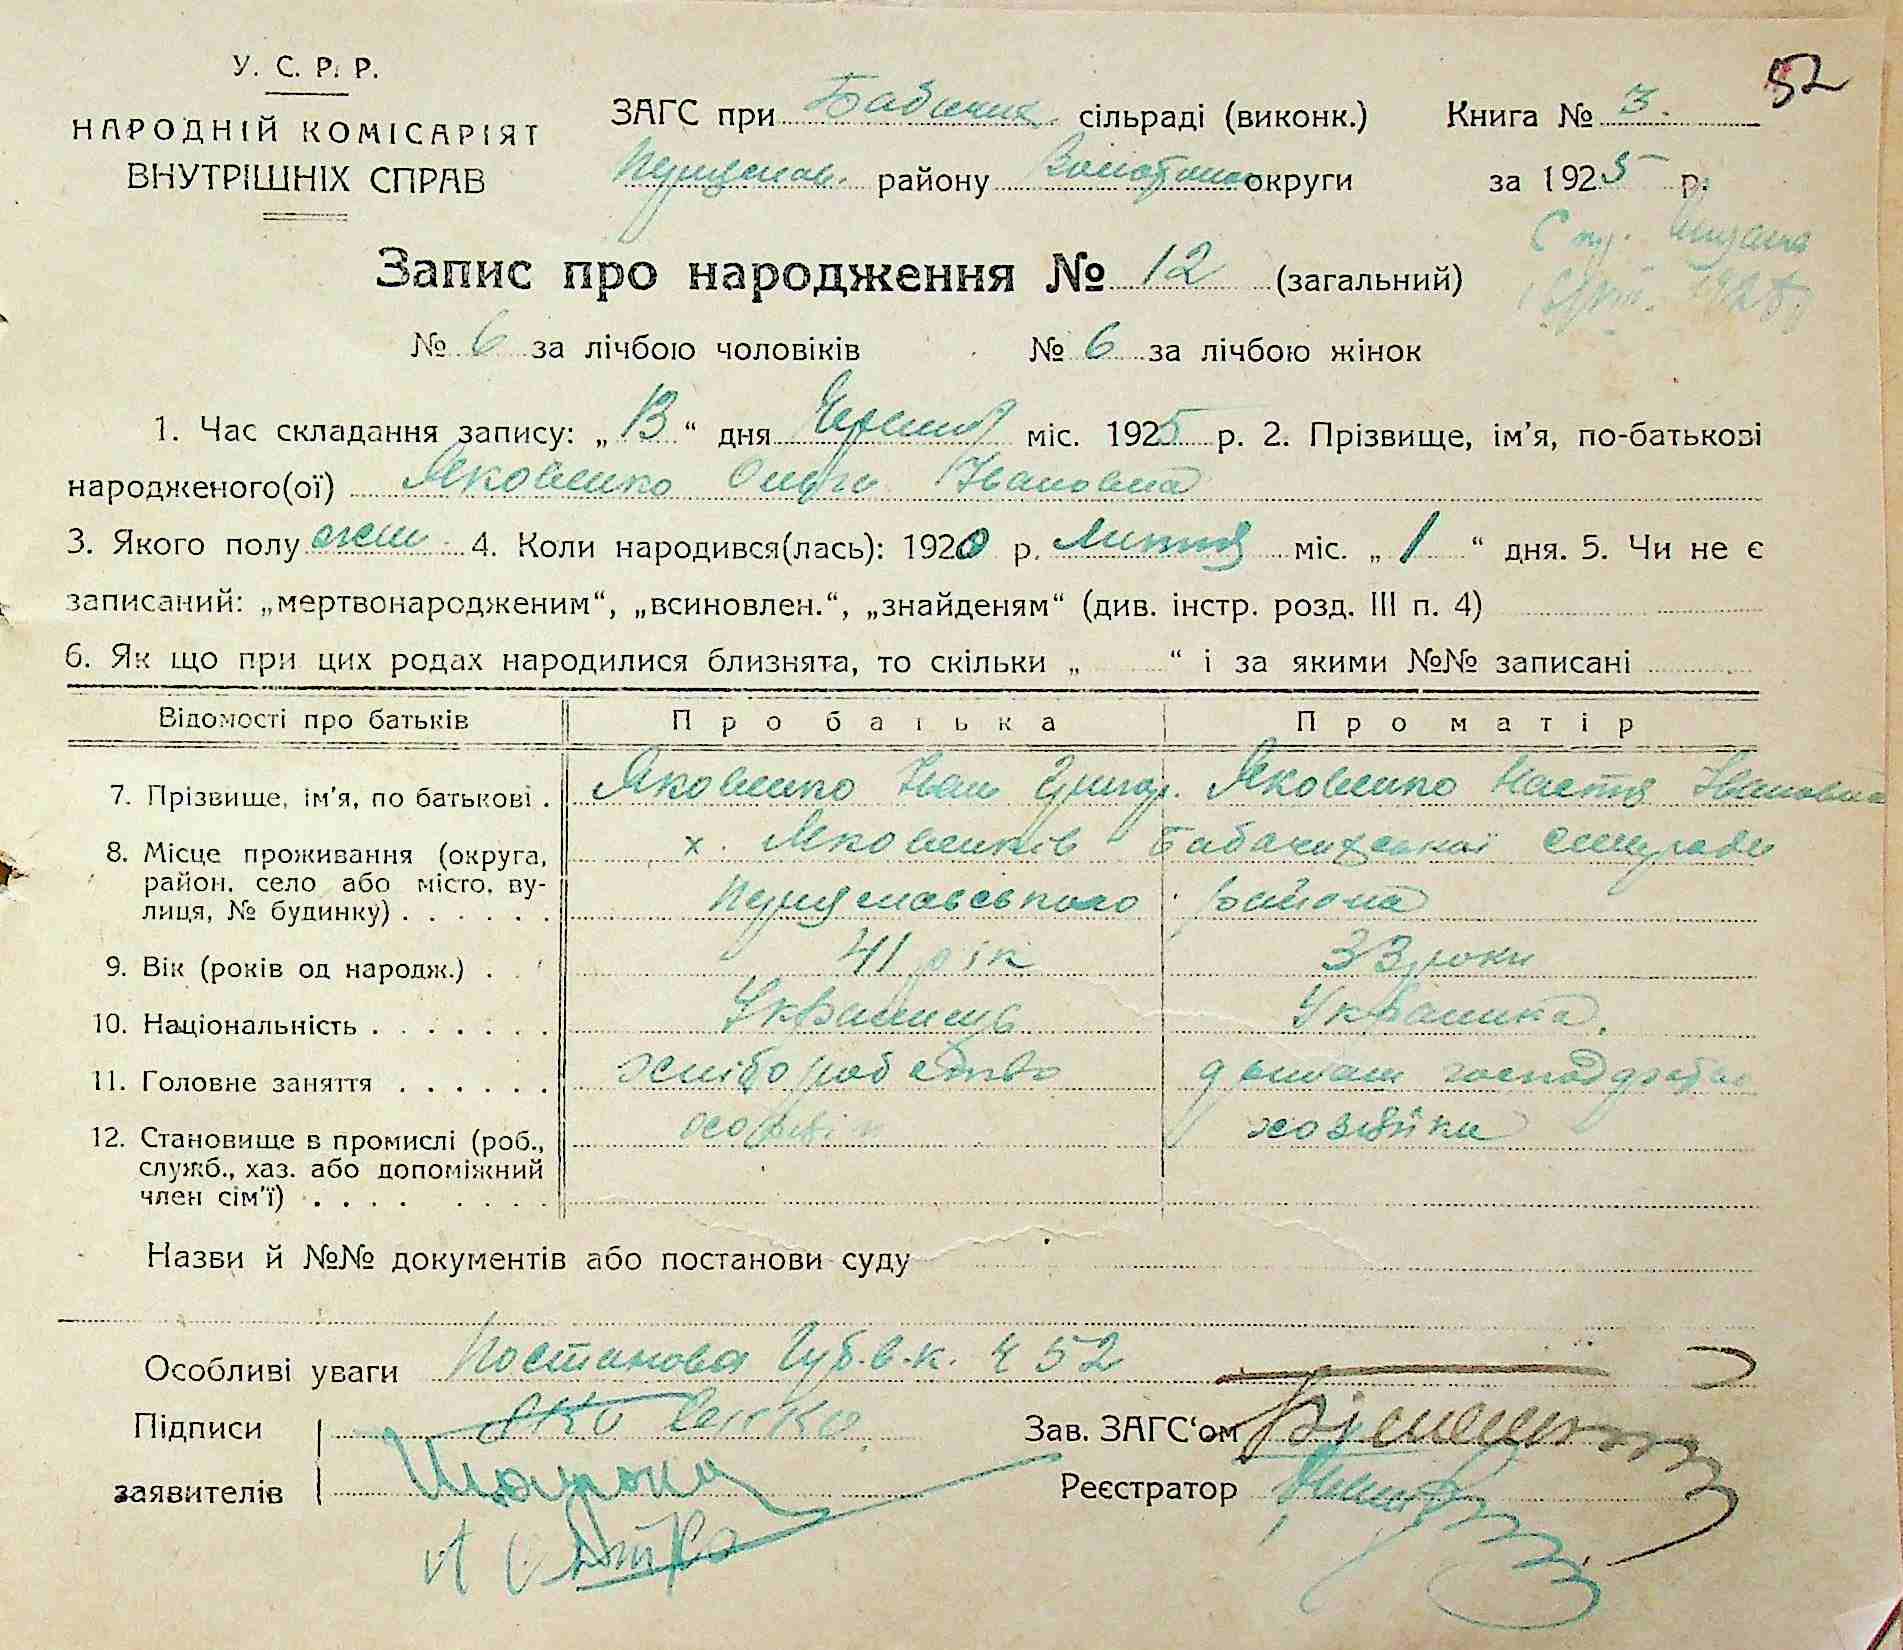 52
У. С. Р. Р.
НАРОДНІЙ КОМІСАРІЯТ
ВНУТРІШНІХ СПРАВ
ЗАГС при Бабачих. сільраді (виконк.) Книга № 3.
Переяслав. району округи за 1925 р.
1925
Запис про народження № 12 (загальний)
№ 6 за лічбою чоловіків № 6 за лічбою жінок
1. Час складання запису: „13“ дня Червня міс. 1925 р. 2. Прізвище, ім’я, по-батькові
народженого(ої) Яковенко Ольга Івановна
3. Якого полу жін. 4. Коли народився(лась): 1920 р. міс. „1“ дня. 5. Чи не є
записаний: „мертвонародженим“, „всиновлен.“, „знайденям“ (див. інстр. розд. III п. 4)
6. Як що при цих родах народилися близнята, то скільки „ “ і за якими №№ записані
Відомості про батьків Про батька Про матір
7. Прізвище, ім’я, по батькові . Яковенко Іван Григор. Яковенко Настя Івановна
8. Місце проживання (округа, х. Яковенків Бабачихської сільради
район, село або місто, ву-
лиця, № будинку) . . . . . . Переяславського района
9. Вік (років од народж.) . . 41 рік 33 роки
10. Національність . . . . . . . Українець Українка.
11. Головне заняття . . . . . . хліборобство домаш господарство
12. Становище в промислі (роб., хозяїн хозяйка
служб., хаз. або допоміжний
член сім’ї) . . . . . . . .
Назви й №№ документів або постанови суду
Особливі уваги Постанова Губ.в.к. ч 52
Підписи Яковенко Зав. ЗАГС‘ом
заявителів Реєстратор